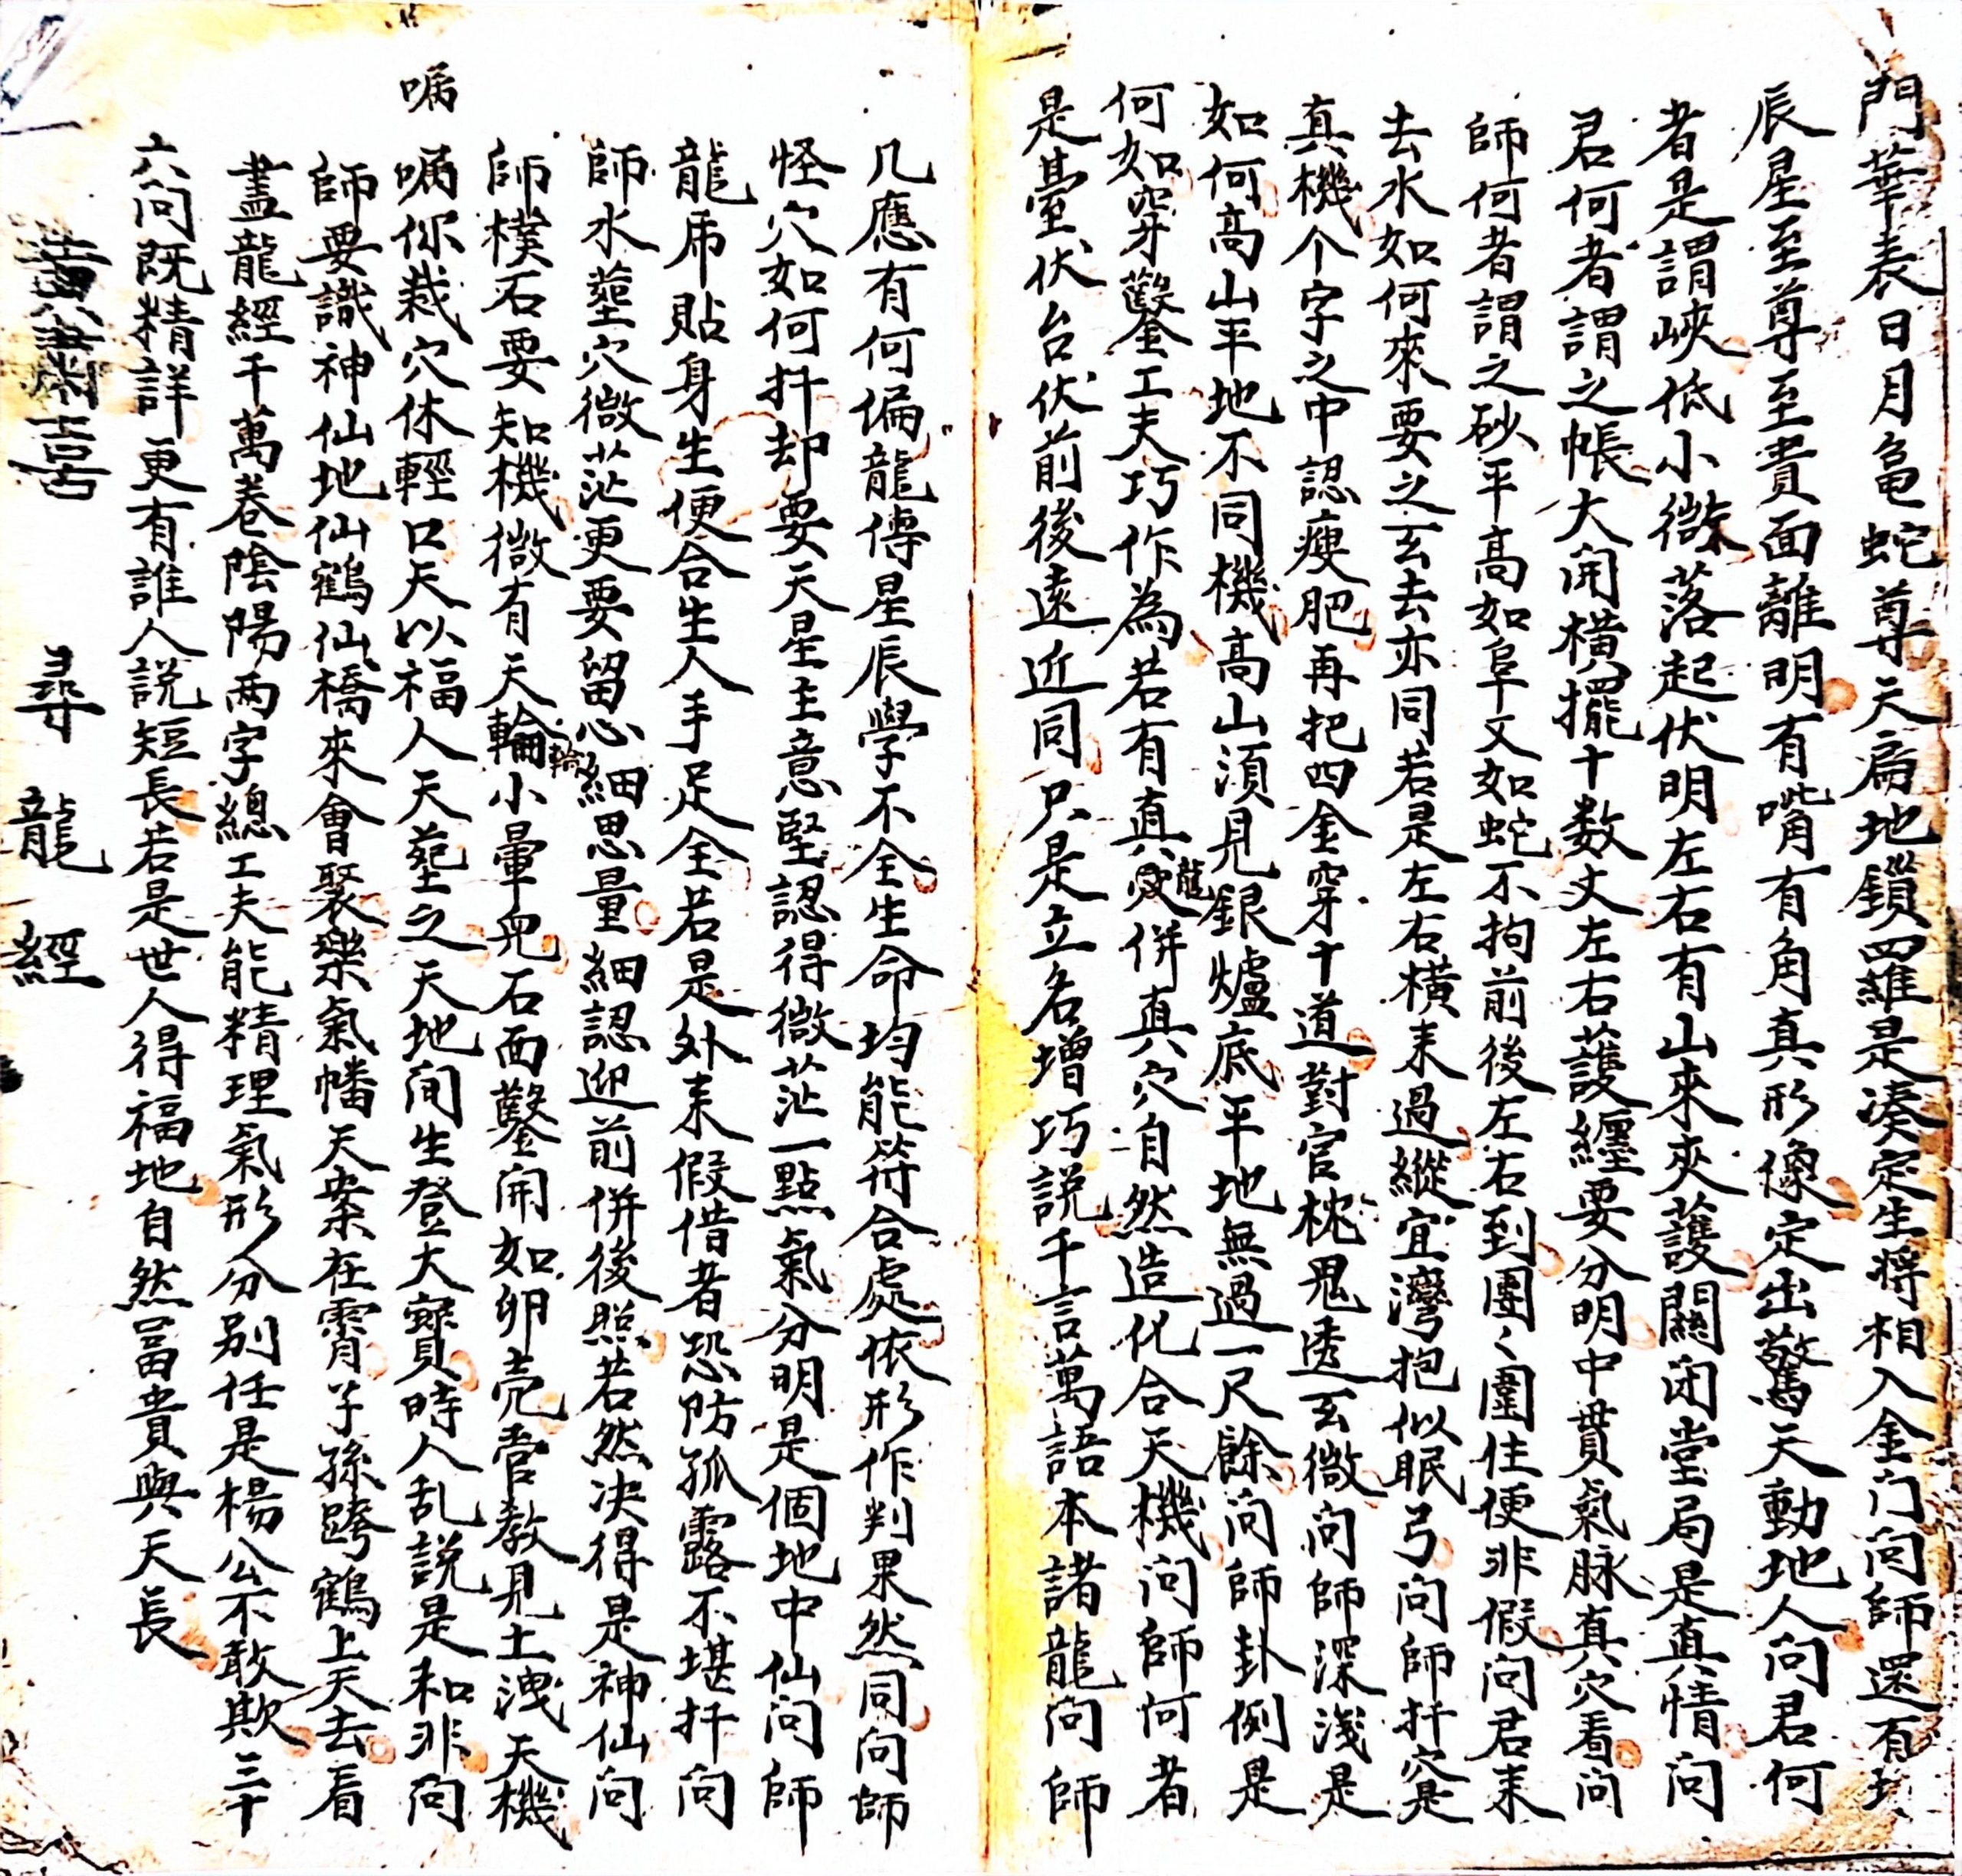 門華表日月龜蛇尊天扃地鎖四羅是湊定生將相入金门问師還有
辰星至尊至貴面離明有嘴有角真形像定出驚天動地人问君何
者是謂峽低小微落起伏明左右有山來夾護關闭堂局是真情问
君何者謂之帳大開橫擺十数丈左右護纏要分明中貫氣脉真穴看问
師何者謂之砂平高如阜文如蛇不拘前後左右到團々圍住便非假问君来
去水如何來要之玄去亦同若是左右横来過縱宜灣抱似眠弓问師扦穴是
真機个字之中認瘦肥再把四金穿十道對官枕鬼透玄微问師深淺是
如何高山平地不同機高山須見銀爐底平地無過一尺餘问師卦例是
何如穿鑿工夫巧作為若有真龍併真穴自然造化合天機问師何者
是臺伏台伏前後遠近同只是立名增巧説千言萬語本諸龍问師
凡應有何偏龍傳星辰學不全生命均能符合處依形作判果然同问師
怪穴如何扦却要天星主意堅認得微茫一點氣分明是個地中仙问師
龍虎貼身生便合生人手足全若是外来假借者恐防孤露不堪扦问
師水塟穴微茫更要留心細思量細認迎前併後照若然决得是神仙问
師樸石要知機微有天輪小暈兜石面鑿開如卵壳啻教見土洩天機
嘱
嘱你裁穴休輕口天以福人天塟之天地间生登大寶時人乱説是和非问
師要識神仙地仙鶴仙橋來會聚樂氣幡天案在霄子孫跨鶴上天去看
盡龍經千萬卷陰陽两字總工夫能精理氣形分别任是楊公不敢欺三十
六问既精詳更有誰人説短長若是世人得福地自然冨貴與天長
尋龍經